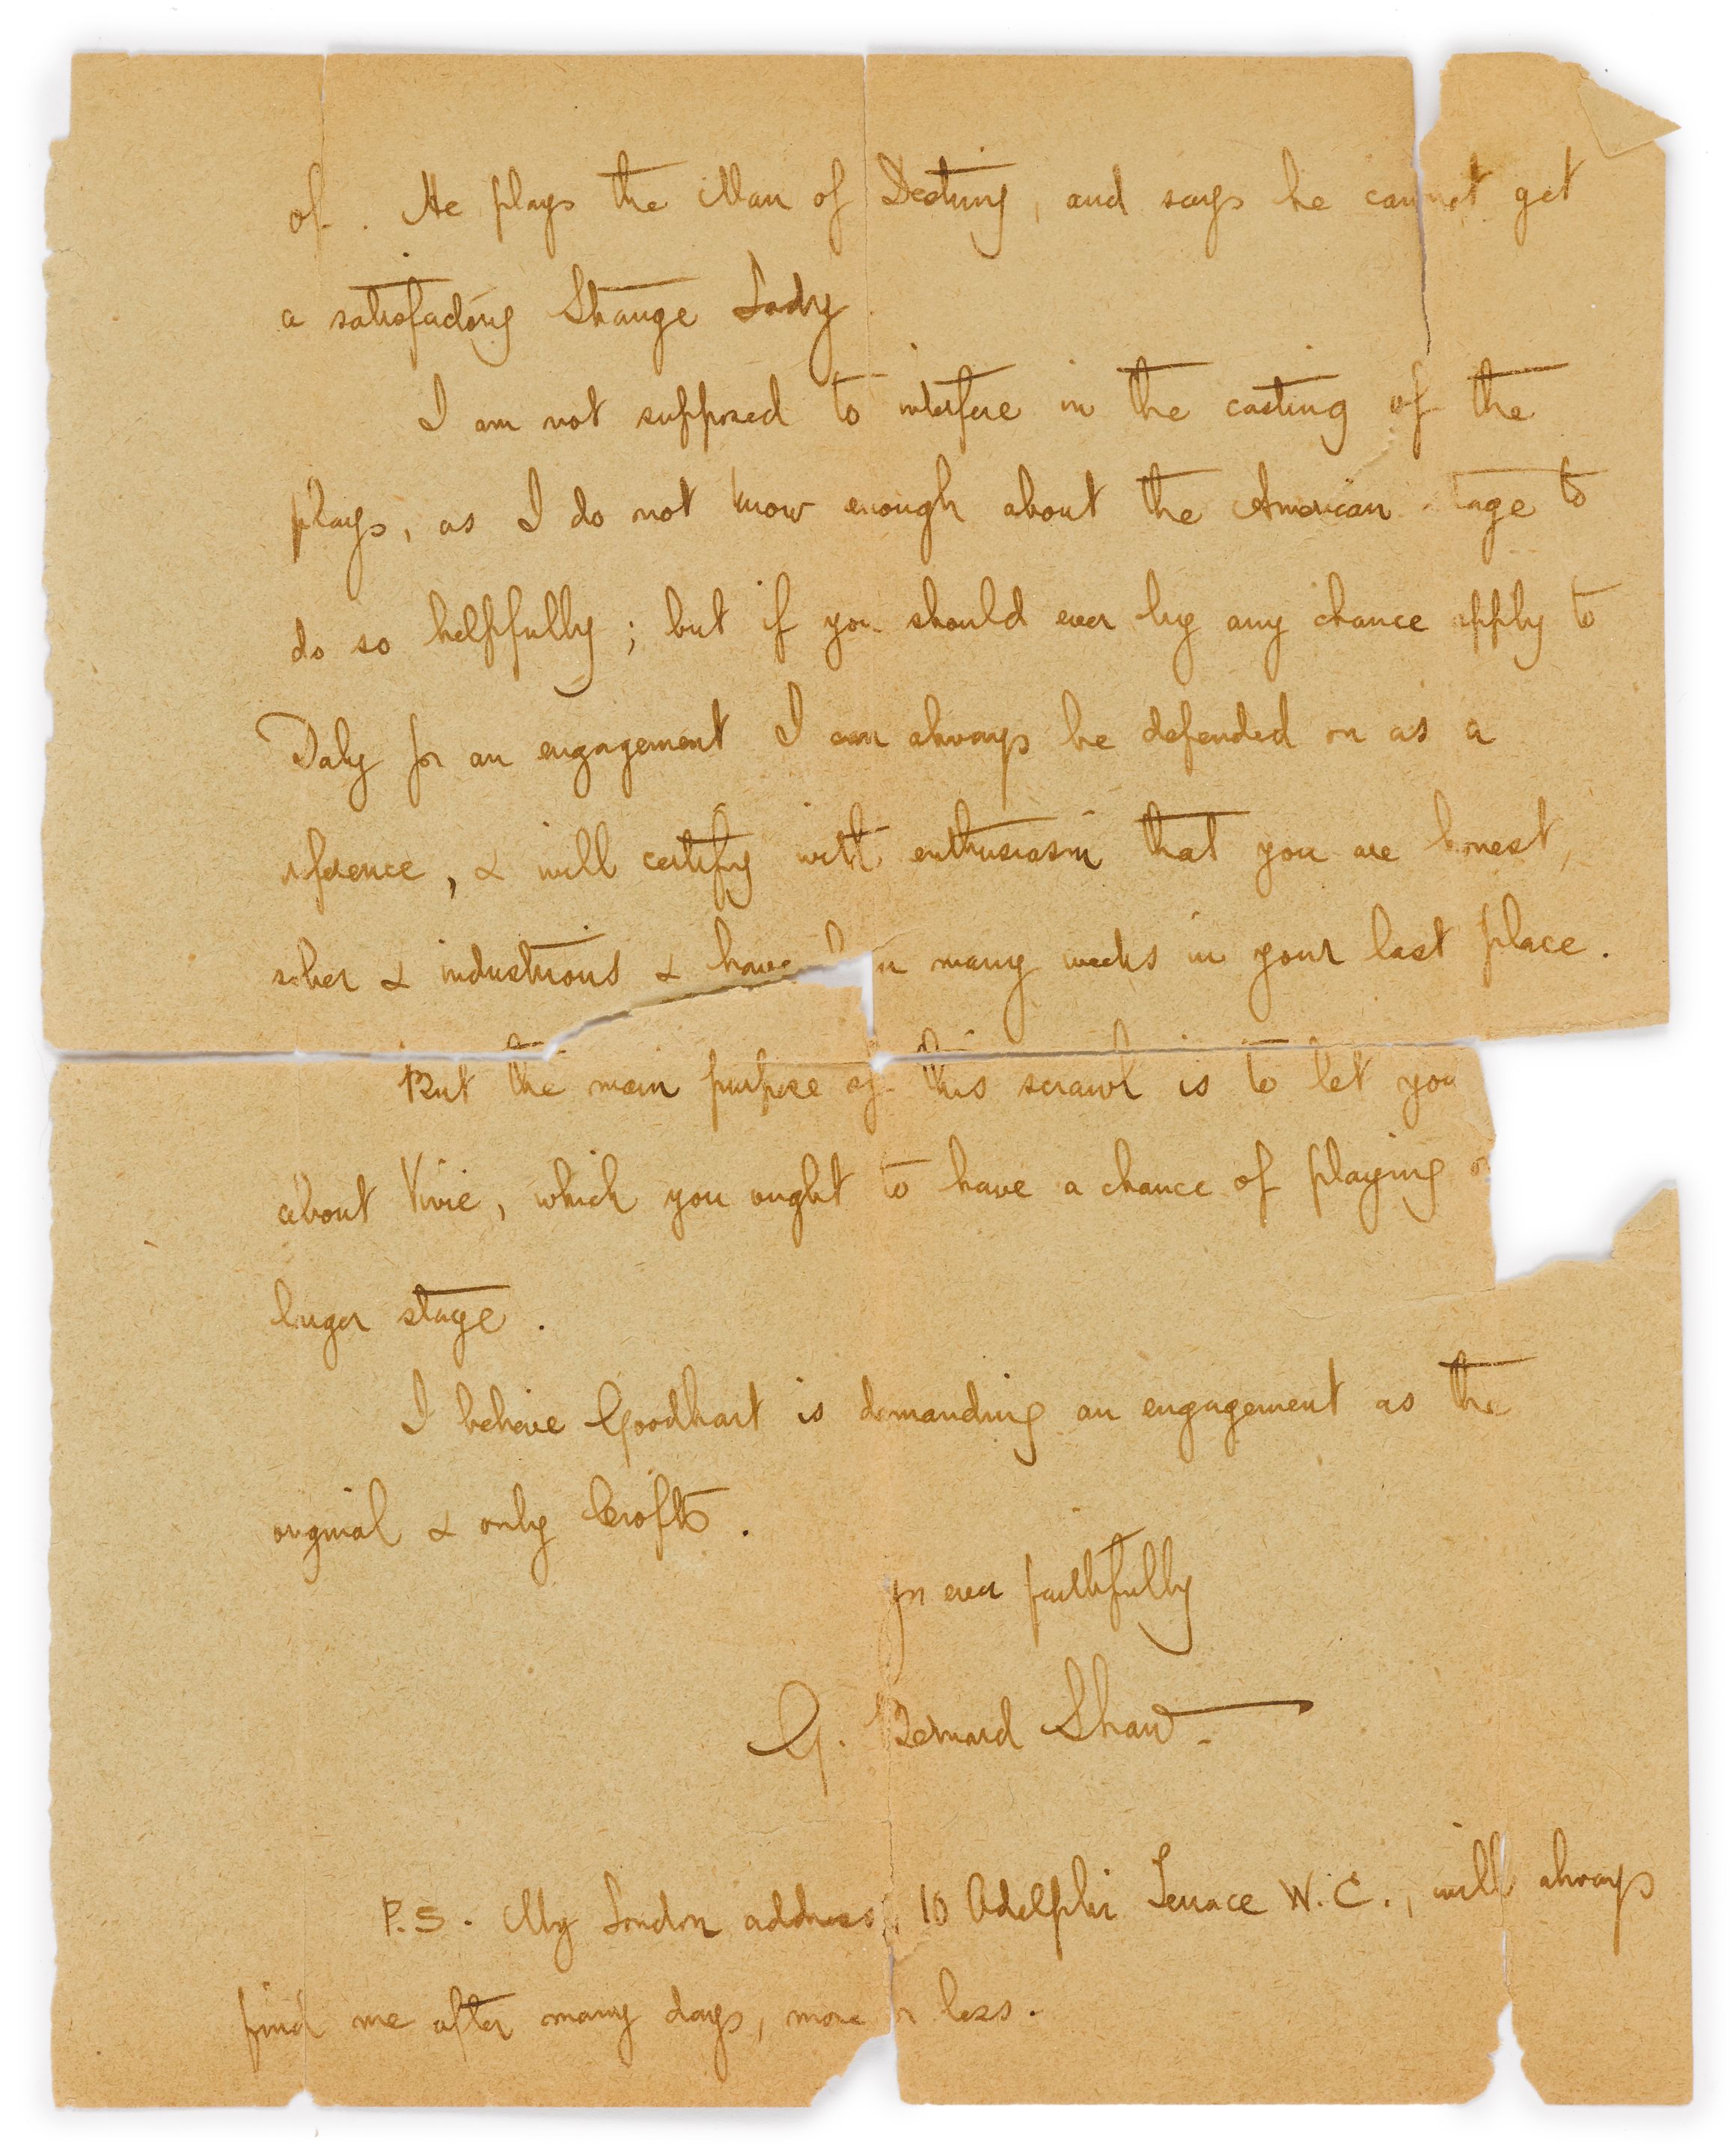 of. He plays the Man of Destiny, and says he cannot get
a satisfactory Strange Lady.
I am not supposed to interfere in the casting of the
plays, as I do not know enough about the American stage to
do so helpfully; but if you should ever by any chance apply to
Daly for an engagement I can always be depended on as a
reference, & will certify with enthusiasm that you are honest,
sober & industrious & have been many weeks in your last place.
But the main purpose of this scrawl is to let you
about Vivie, which you ought to have a chance of playing
larger stage.
I believe Goodhart is demanding an engagement as the
original & only Crofts.
yrs ever faithfully
G. Bernard Shaw.
P.S. My London address, 10 Adelphi Terrace W.C., will always
find me after many days, more or less.